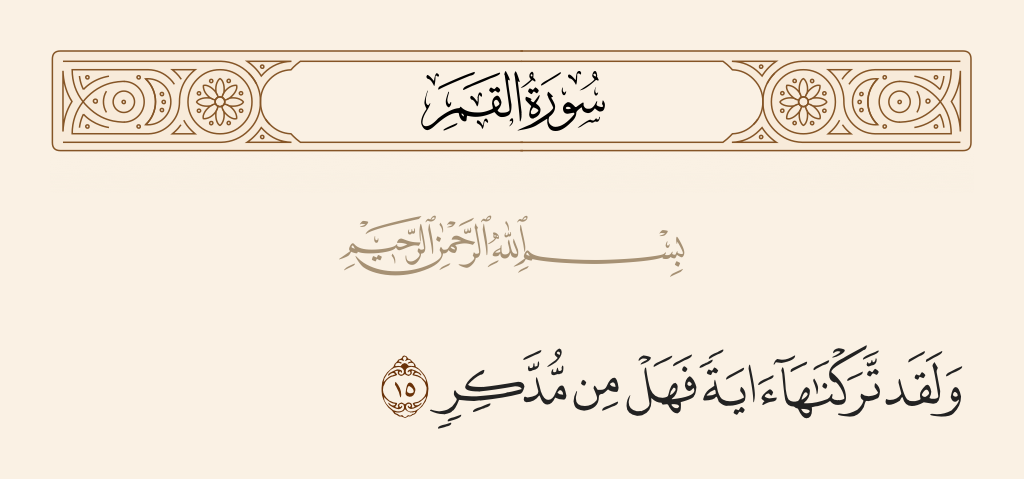 سُورَةُ القَمَرِ
بِسْمِ ٱللَّهِ ٱلرَّحْمَٰنِ ٱلرَّحِيمِ
وَلَقَد تَّرَكْنَٰهَآ ءَايَةً فَهَلْ مِن مُّدَّكِرٍ ١٥